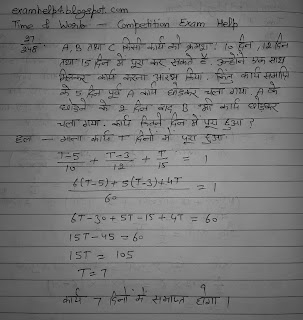 examhelp4.blogspot.com
Time & Work — Competition Exam Help
27
248
A, B तथा C किसी कार्य को क्रमशः 10 दिन, 12 दिन
तथा 15 दिन में पूरा कर सकते हैं. उन्होंने एक साथ
मिलकर कार्य करना आरंभ किया. किन्तु कार्य समाप्ति
के 5 दिन पूर्व A कार्य छोड़कर चला गया. A के
छोड़ने के 2 दिन बाद, B भी कार्य छोड़कर
चला गया. कार्य कितने दिन में पूरा हुआ?
हल — माना कार्य T दिनों में पूरा हुआ.
T-5/10 + T-3/12 + T/15 = 1
6(T-5) + 5(T-3) + 4T / 60 = 1
6T - 30 + 5T - 15 + 4T = 60
15T - 45 = 60
15T = 105
T = 7
कार्य 7 दिनों में समाप्त होगा।